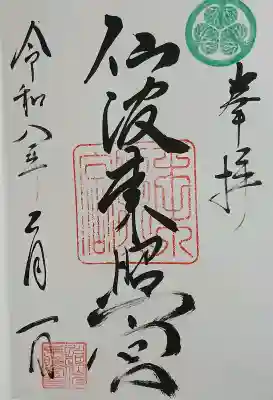 奉拝
仙波東照宮
令和八年二月一日